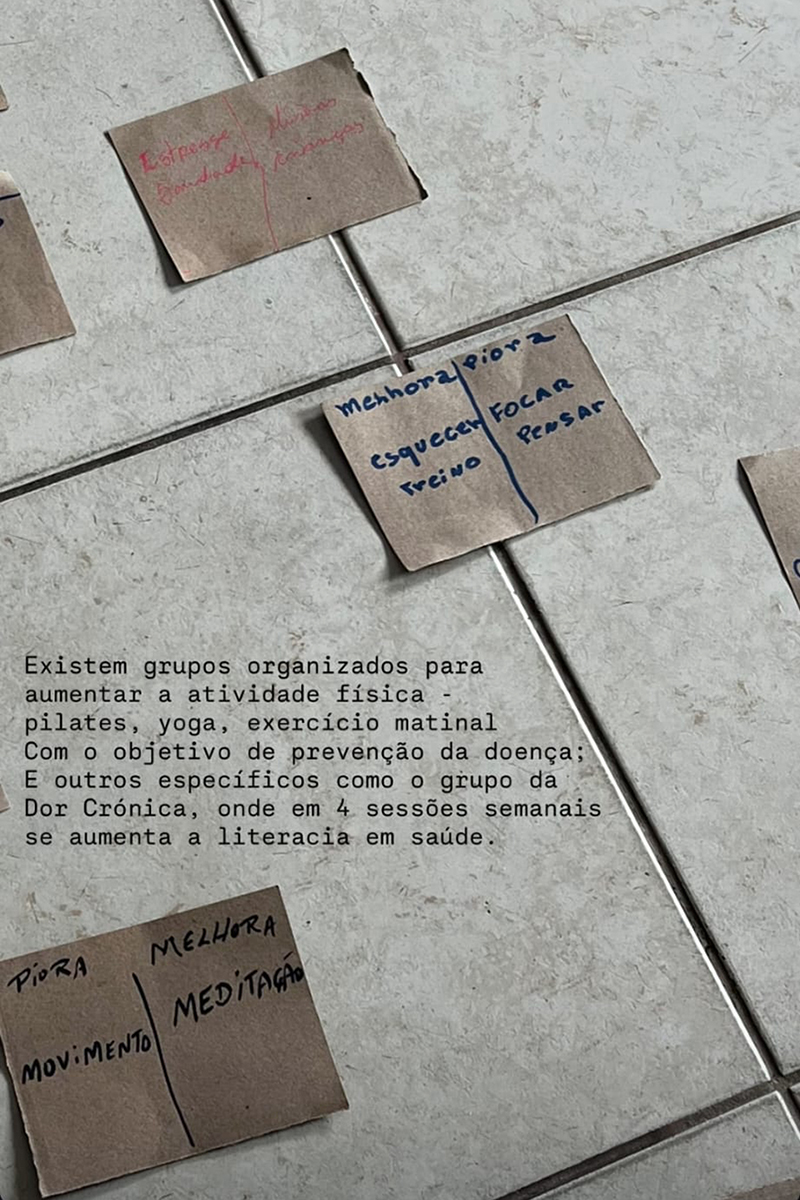 Estresse
Ansiedade
Minhas
crianças
Melhora
esquecer
treino
Piora
FOCAR
PENSAR
Existem grupos organizados para
aumentar a atividade física -
pilates, yoga, exercício matinal
Com o objetivo de prevenção da doença;
E outros específicos como o grupo da
Dor Crónica, onde em 4 sessões semanais
se aumenta a literacia em saúde.
PiORA
MOViMENTO
MELHORA
MEDiTAÇÃO